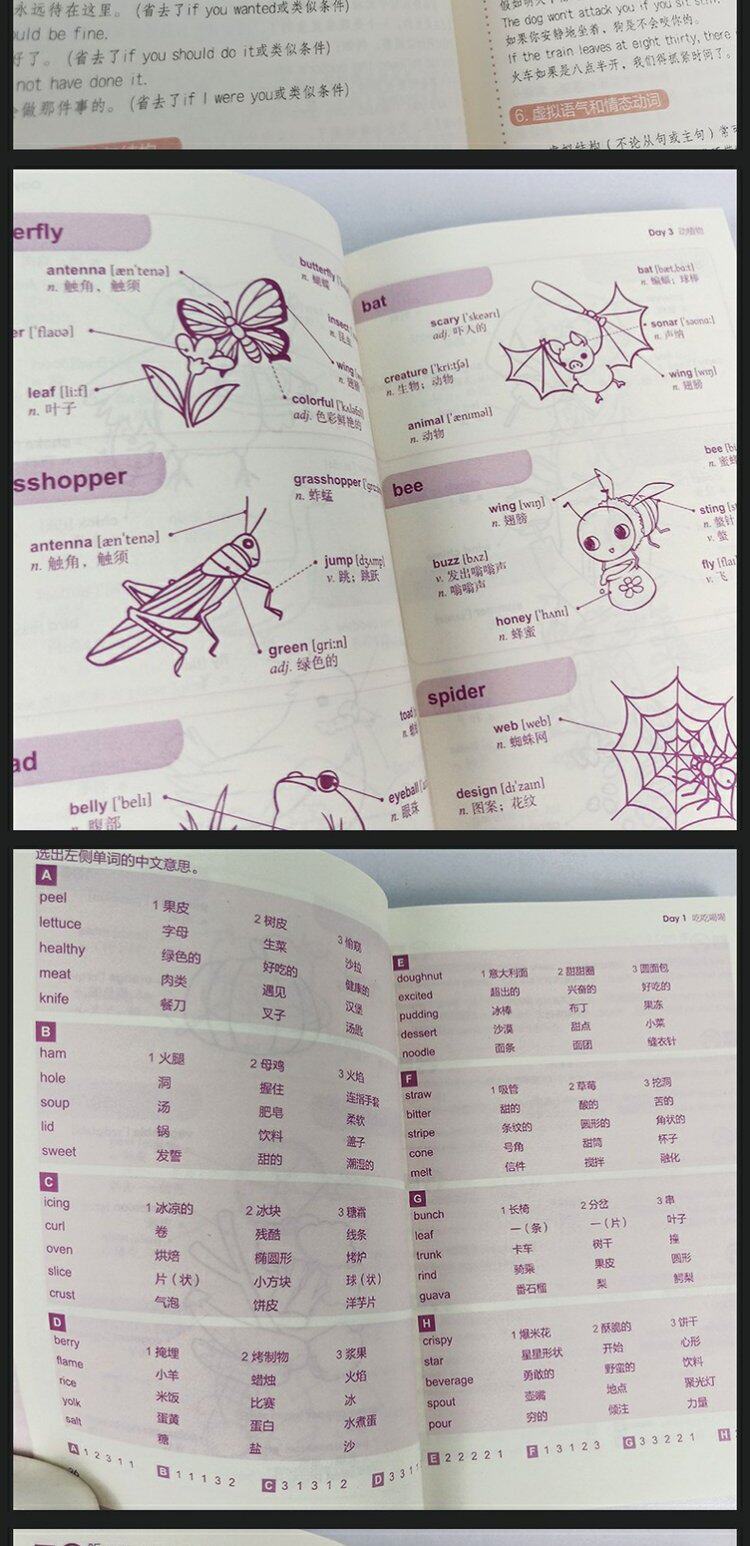 永远待在这里。（省去了if you wanted或类似条件）
would be fine.
好了。（省去了if you should do it或类似条件）
not have done it.
做那件事的。（省去了if I were you或类似条件）
The dog won't attack you if you sit still.
如果你安静地坐着，狗是不会咬你的。
If the train leaves at eight thirty, there
火车如果是八点半开，我们得抓紧时间了。
6. 虚拟语气和情态动词
（不论从句或主句）
erfly
antenna [æn'tenə]
n. 触角，触须
er ['flaʊə]
leaf [li:f]
n. 叶子
butterfly
n. 蝴蝶
insect
n. 昆虫
wing
n. 翅膀
colorful
adj. 色彩鲜艳的
sshopper
grasshopper
n. 蚱蜢
antenna [æn'tenə]
n. 触角，触须
jump [dʒʌmp]
v. 跳；跳跃
green [gri:n]
adj. 绿色的
ad
toad
belly ['belɪ]
n. 腹部
eyeball
n. 眼珠
Day 3 动植物
bat
scary ['skeərɪ]
adj. 吓人的
creature ['kri:tʃə]
n. 生物；动物
animal ['ænɪməl]
n. 动物
bat [bæt,bɑ:t]
n. 蝙蝠；球棒
sonar ['səʊnɑ:]
n. 声纳
wing [wɪŋ]
n. 翅膀
bee
wing [wɪŋ]
n. 翅膀
buzz [bʌz]
v. 发出嗡嗡声
n. 嗡嗡声
honey ['hʌnɪ]
n. 蜂蜜
bee
n. 蜜蜂
sting
n. 螫针
v. 螫
fly [flaɪ]
v. 飞
spider
web [web]
n. 蜘蛛网
design [dɪ'zaɪn]
n. 图案；花纹
选出左侧单词的中文意思。
A
peel 1 果皮 2 树皮 3 偷窥
lettuce 字母 生菜 沙拉
healthy 绿色的 好吃的 健康的
meat 肉类 遇见 汉堡
knife 餐刀 叉子 汤匙
B
ham 1 火腿 2 母鸡 3 火焰
hole 洞 握住 连指手套
soup 汤 肥皂 柔软
lid 锅 饮料 盖子
sweet 发誓 甜的 潮湿的
C
icing 1 冰凉的 2 冰块 3 糖霜
curl 卷 残酷 线条
oven 烘焙 椭圆形 烤炉
slice 片（状） 小方块 球（状）
crust 气泡 饼皮 洋芋片
D
berry 1 掩埋 2 烤制物 3 浆果
flame 小羊 蜡烛 火焰
rice 米饭 比赛 冰
yolk 蛋黄 蛋白 水煮蛋
salt 糖 盐 沙
A 1 2 3 1 1 B 1 1 1 3 2 C 3 1 3 1 2 D 3 3 1
Day 1 吃吃喝喝
E
doughnut 1 意大利面 2 甜甜圈 3 圆面包
excited 超出的 兴奋的 好吃的
pudding 冰棒 布丁 果冻
dessert 沙漠 甜点 小菜
noodle 面条 面团 缝衣针
F
straw 1 吸管 2 草莓 3 挖洞
bitter 甜的 酸的 苦的
stripe 条纹的 圆形的 角状的
cone 号角 甜筒 杯子
melt 信件 搅拌 融化
G
bunch 1 长椅 2 分岔 3 串
leaf 一（条） 一（片） 叶子
trunk 卡车 树干 撞
rind 骑乘 果皮 圆形
guava 番石榴 梨 鳄梨
H
crispy 1 爆米花 2 酥脆的 3 饼干
star 星星形状 开始 心形
beverage 勇敢的 野蛮的 饮料
spout 壶嘴 地点 聚光灯
pour 穷的 倾注 力量
E 2 2 2 2 1 F 1 3 1 2 3 G 3 3 2 2 1 H